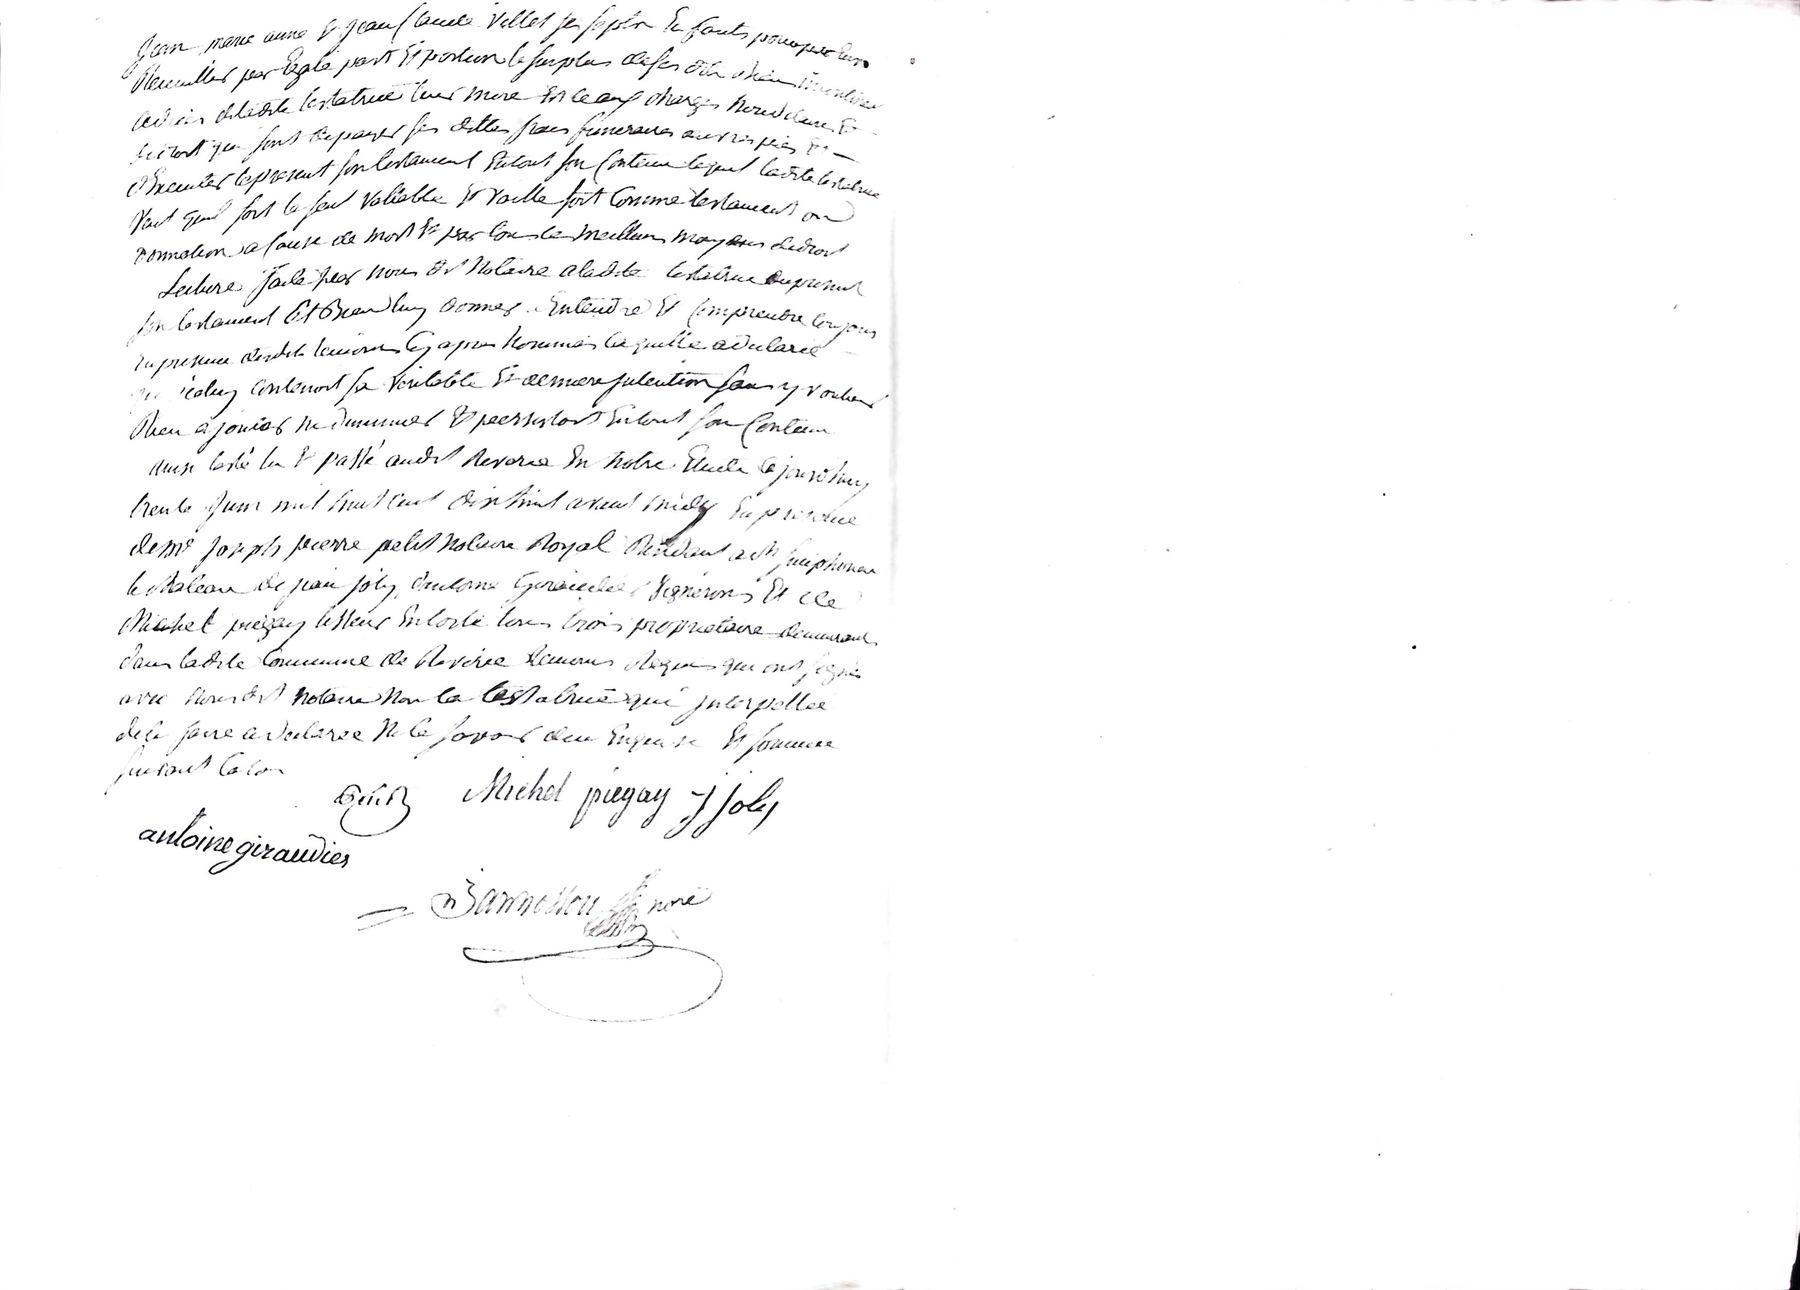 Jean marie anne & jean Claude Villet ses sept enfants pour par eux
Recueillir par Egale part Et portion le surplus de ses dits Biens
de ladite testatrice leur mere Et ce aux charges
droit qui sont de payer ses dettes frais funeraires &
d'Executer le present son testament En tout son Contenu lequel ladite testatrice
Veut quil soit le seul Valiable Et Vaille soit Comme testament ou
donnation a Cause de mort & par tous les meilleurs moyens de droit
Lecture faite par nous dit Notaire a ladite testatrice du present
son testament Et Bien luy donner a Entendre Et Comprendre toujours
En presence desdits temoins Cy apres Nommés laquelle a declaré
iceluy contenir sa Veritable Et derniere jntention sans y vouloir
Rien ajouter ni diminuer & persistant En tout son Contenu
ainsi testé lu & passé audit Riverie En notre Etude Cejourdhuy
trente Juin mil huit cent dix huit avant midy En presence
de me Joseph pierre petit Notaire Royal Residant a St simphorien
le Chateau de jean joly, d'antoine Giraudier Vignerons Et de
Michel piegay tisseur En toile tous trois proprietaire demeurants
dans ladite Commune de Riverie temoins Requis qui ont signés
avec Nous dit notaire Non la testatrice qui jnterpellée
de le faire a declarée Ne le savoir de ce Enquise Et sommée
suivant la loi
Petit Michel piegay j joly
antoine giraudier
nore